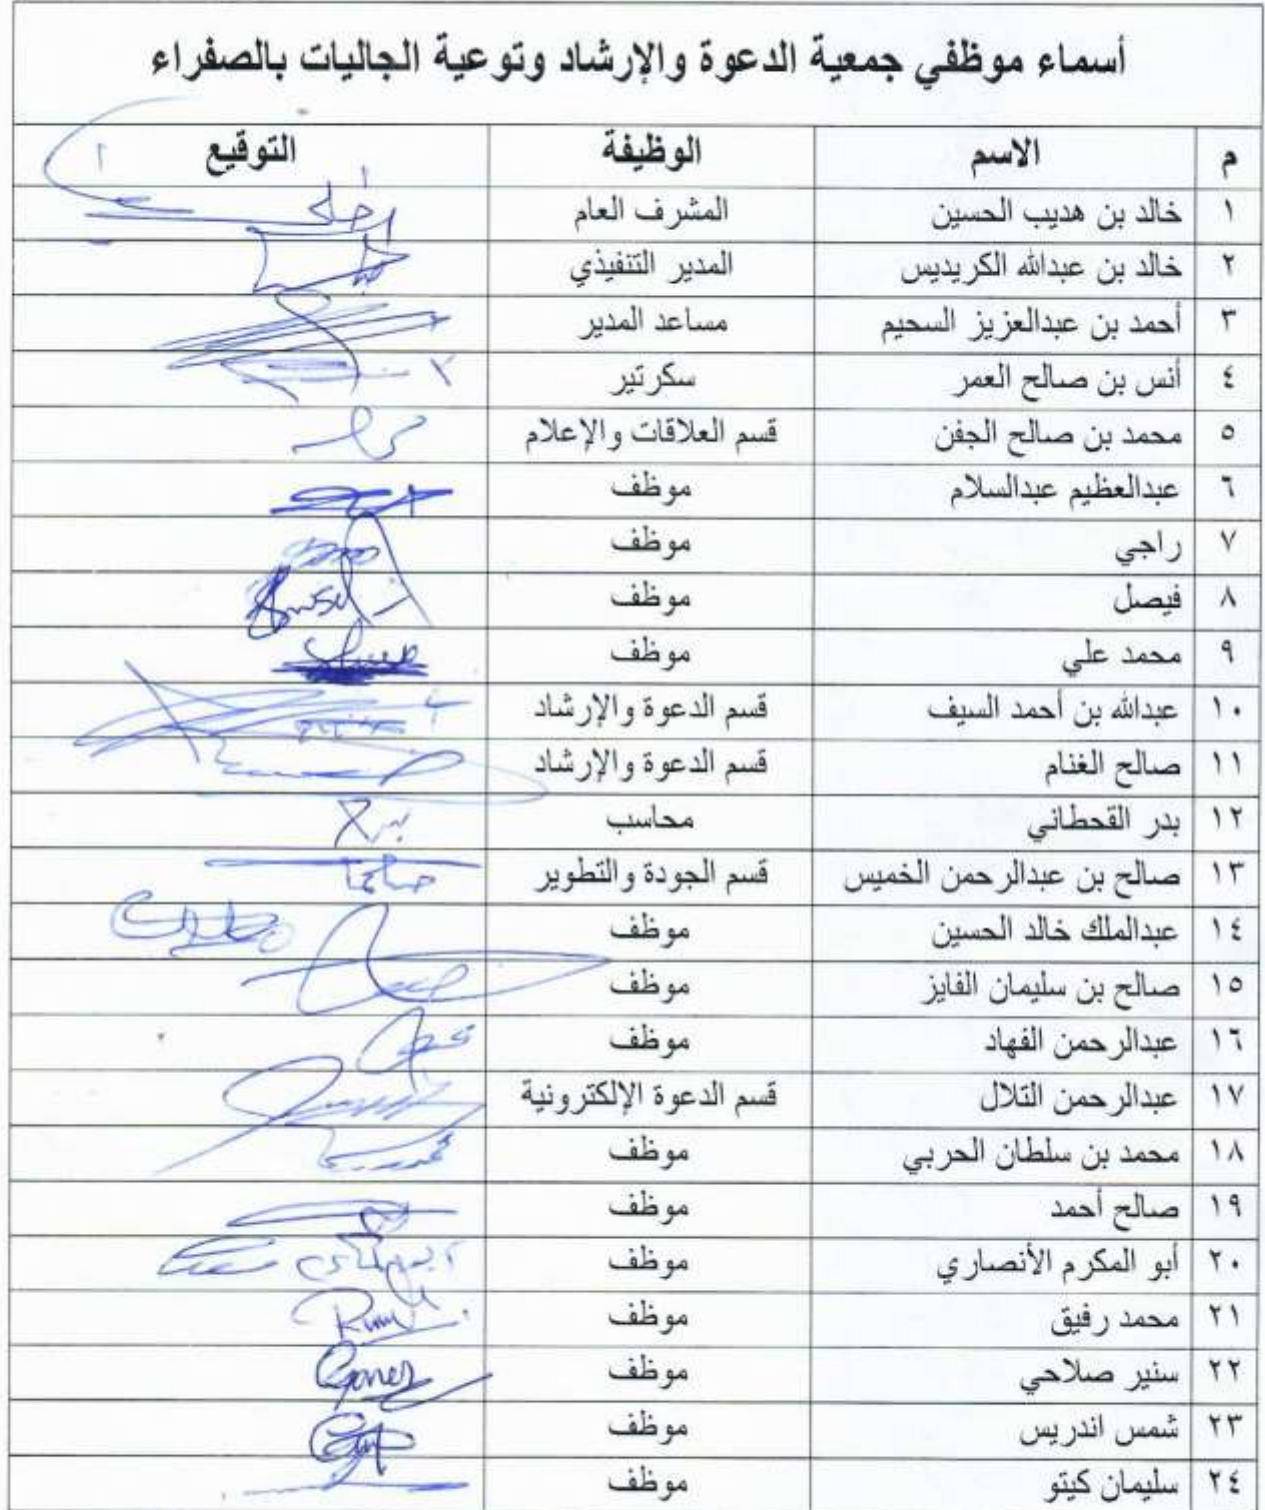 أسماء موظفي جمعية الدعوة والإرشاد وتوعية الجاليات بالصفراء
م الاسم الوظيفة التوقيع
١ خالد بن هديب الحسين المشرف العام
٢ خالد بن عبدالله الكريديس المدير التنفيذي
٣ أحمد بن عبدالعزيز السحيم مساعد المدير
٤ أنس بن صالح العمر سكرتير
٥ محمد بن صالح الجفن قسم العلاقات والإعلام
٦ عبدالعظيم عبدالسلام موظف
٧ راجي موظف
٨ فيصل موظف
٩ محمد علي موظف
١٠ عبدالله بن أحمد السيف قسم الدعوة والإرشاد
١١ صالح الغنام قسم الدعوة والإرشاد
١٢ بدر القحطاني محاسب
١٣ صالح بن عبدالرحمن الخميس قسم الجودة والتطوير
١٤ عبدالملك خالد الحسين موظف
١٥ صالح بن سليمان الفايز موظف
١٦ عبدالرحمن الفهاد موظف
١٧ عبدالرحمن التلال قسم الدعوة الإلكترونية
١٨ محمد بن سلطان الحربي موظف
١٩ صالح أحمد موظف
٢٠ أبو المكرم الأنصاري موظف
٢١ محمد رفيق موظف
٢٢ سنير صلاحي موظف
٢٣ شمس اندريس موظف
٢٤ سليمان كيتو موظف